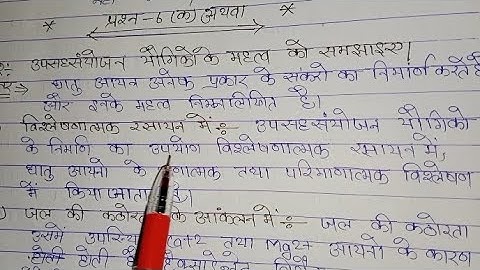 * प्रश्न-6 (क) अथवा *
उपसहसंयोजन यौगिकों के महत्व को समझाइए।
धातु आयन अनेक प्रकार के संकरो का निर्माण करते है
और इनके महत्व निम्नलिखित है।
विश्लेषणात्मक रसायन में :- उपसहसंयोजन यौगिको
के निर्माण का उपयोग विश्लेषणात्मक रसायन में,
धातु आयनो के तथा परिमाणात्मक विश्लेषण
में किया जाता है।
जल की कठोरता के आंकलन में :- जल की कठोरता
उसमें तथा Mg2+ आयनो के कारण
होती